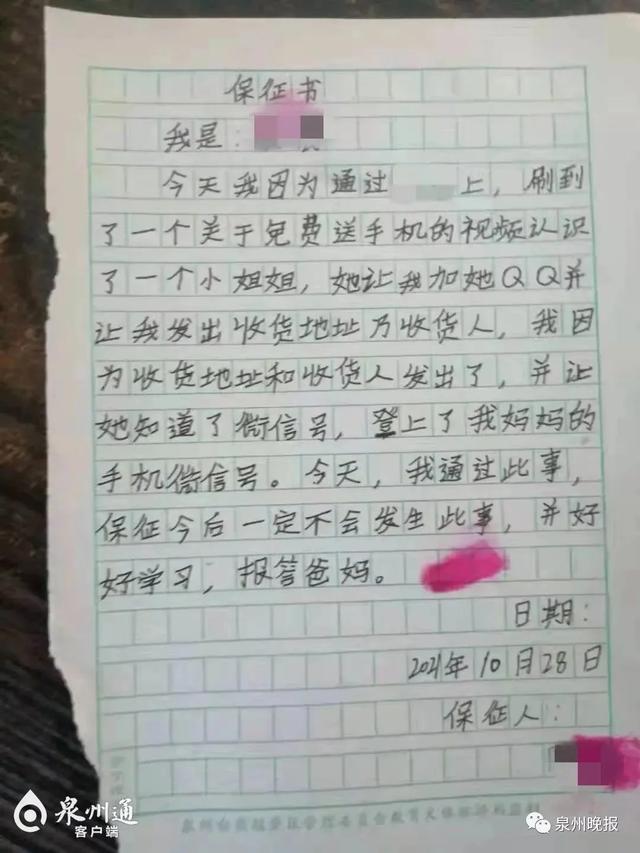 保征书
我是:
今天我因为通过 上，刷到
了一个关于免费送手机的视频认识
了一个小姐姐，她让我加她QQ并
让我发出收货地址乃收货人，我因
为收货地址和收货人发出了，并让
她知道了微信号，登上了我妈妈的
手机微信号。今天，我通过此事，
保征今后一定不会发生此事，并好
好学习，报答爸妈。
日期:
2021年10月28日
保征人:
泉州通
客户端
泉州晚报